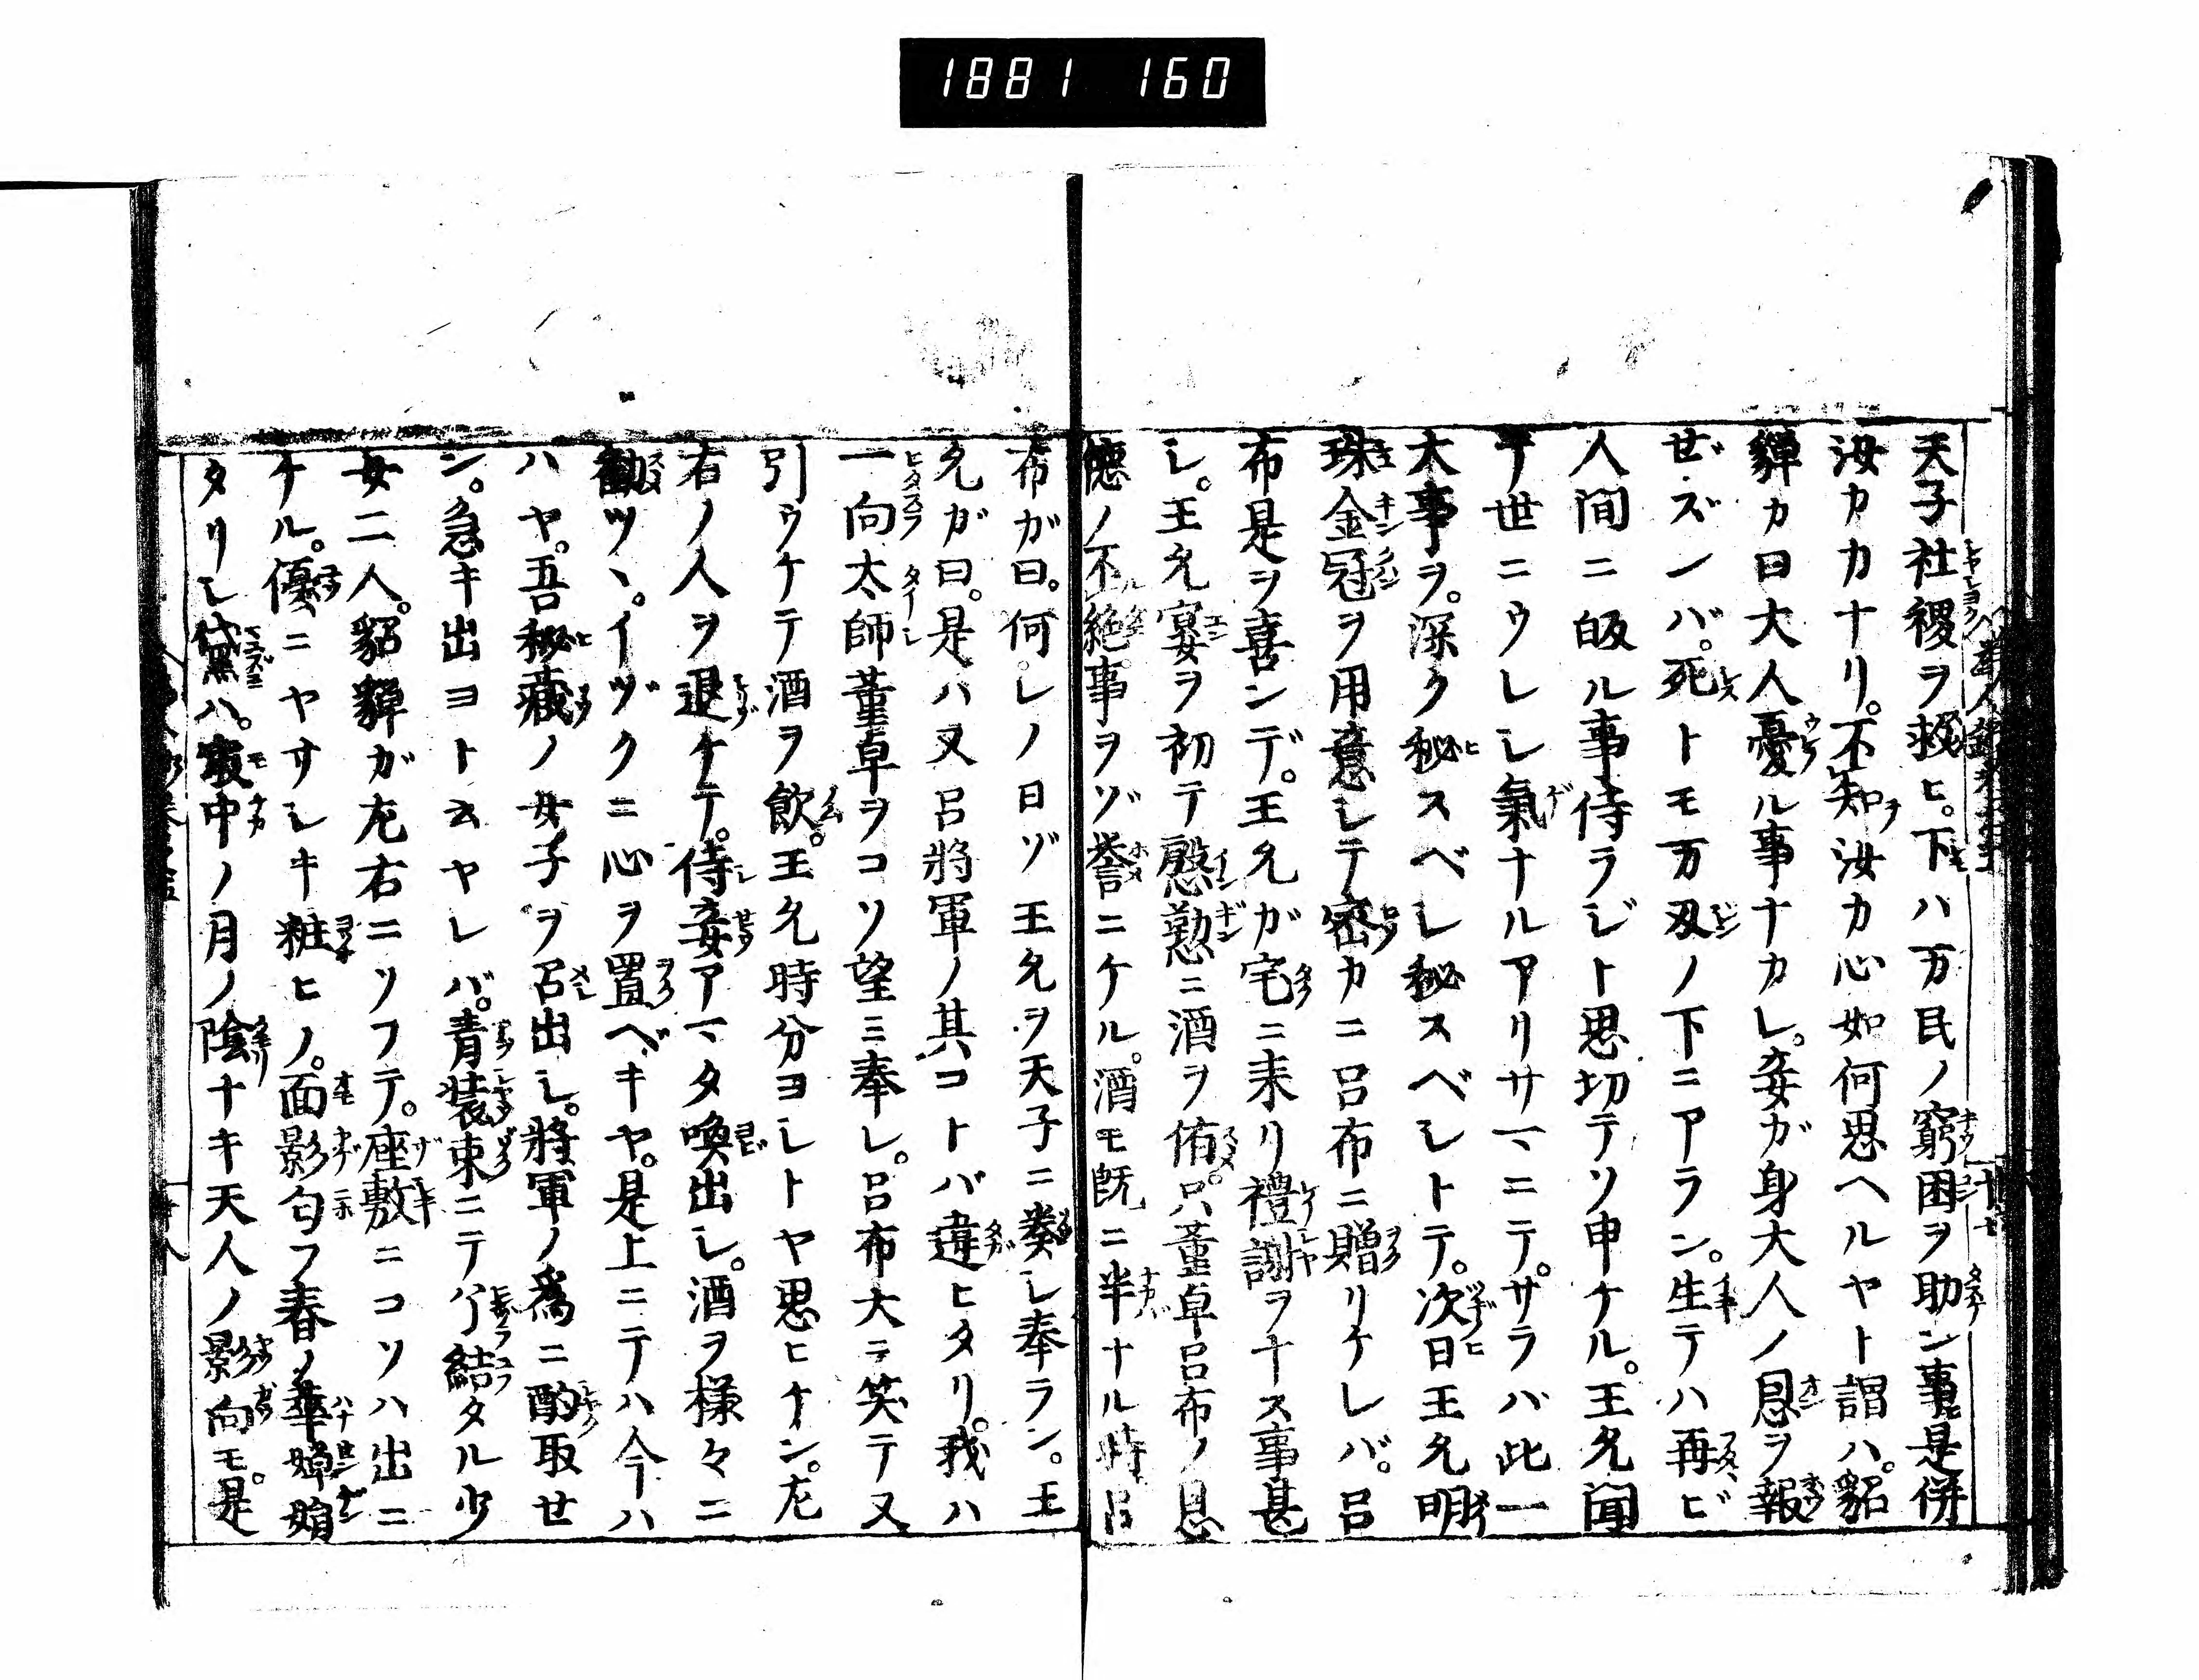 1881 160
天子社稷ヲ救ヒ。下ハ万民ノ窮困ヲ助ン事是併
汝カカナリ。不知汝カ心如何思ヘルヤト謂ハ。貂
蟬カ曰大人憂ル事ナカレ。妾ガ身大人ノ恩ヲ報
ゼズンバ。死トモ万刄ノ下ニアラン。生テハ再ビ
人間ニ皈ル事侍ラジト思切テソ申ケル。王允聞
テ世ニウレシ氣ナルアリサマニテ。サラバ此一
大事ヲ。深ク秘スベシ秘スベシトテ。次日王允明
珠金冠ヲ用意シテ密カニ呂布ニ贈リケレバ。呂
布是ヲ喜ンデ。王允ガ宅ニ来リ禮謝ヲナス事甚
シ。王允宴ヲ初テ慇懃ニ酒ヲ侑。只董卓呂布ノ恩
德ノ不絶事ヲゾ誉ニケル。酒モ既ニ半ナル時呂
布ガ曰。何レノ日ゾ王允ヲ天子ニ奏シ奉ラン。王
允ガ曰。是ハ又呂將軍ノ其コトバ違ヒタリ。我ハ
一向太師董卓ヲコソ望ミ奉レ。呂布大ニ笑テ又
引ウケテ酒ヲ飲。王允時分ヨシトヤ思ヒケン。左
右ノ人ヲ退ケテ。侍妾アマタ喚出シ。酒ヲ様々ニ
勸ツヽ。イヅクニ心ヲ置ベキヤ。是上ニテハ今ハ
ハヤ。吾秘藏ノ女子ヲ召出シ。將軍ノ爲ニ酌取セ
ン。急キ出ヨト云ヤレバ。青装束ニテ結タル少
女二人。貂蟬ガ左右ニソフテ。座敷ニコソハ出ニ
ケル。優ニヤサシキ粧ヒノ。面影匂フ春ノ華嬋娟
タリシ黛ハ。最中ノ月ノ陰ナキ天人ノ影向モ。是